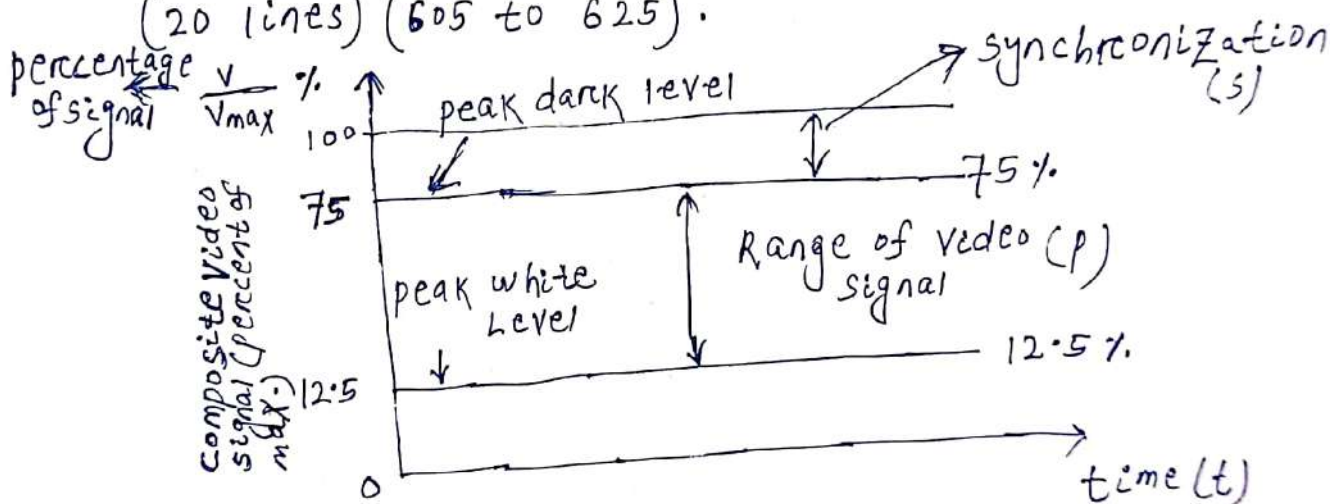 (20 lines) (605 to 625).
percentage of signal
V/Vmax %
synchronization (s)
peak dark level
100
75
75 %
Range of video (P) signal
peak white Level
12.5 %
12.5
composite video signal (percent of max.)
0
time (t)